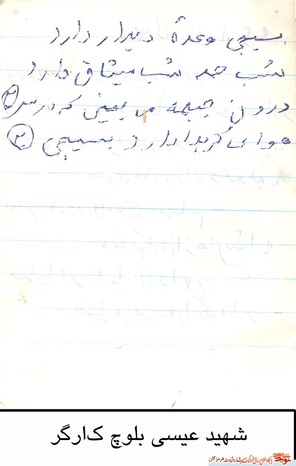 بسیجی وعدهٔ دیدار دارد
شب حمله شب میثاق دارد
درون جبهه می بینی که در سر (۲)
هوای کربلا دارد بسیجی (۲)
شهید عیسی بلوچ کارگر